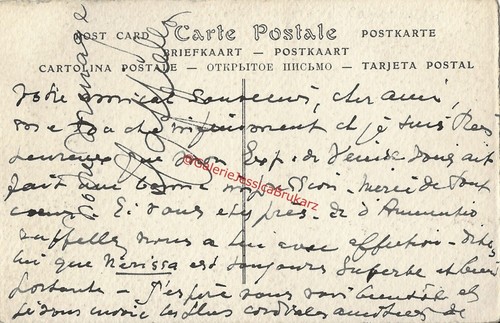 POST CARD
Carte Postale
POSTKARTE
BRIEFKAART — POSTKAART
CARTOLINA POSTALE — ОТКРЫТОЕ ПИСЬМО — TARJETA POSTAL
amical souvenir, cher ami,
me touche infiniment et je suis très
heureuse que mon Exp. de Venise vous ait
fait une bonne impression. Merci de tout
cœur. Si vous êtes près de d'Annunzio
rappellez nous a lui avec affection. dites
lui que Nerissa est toujours superbe et bien
portante — J'espère vous voir bientôt et
je vous envoie les plus cordiales de
©GalerieJessicaBrukarz